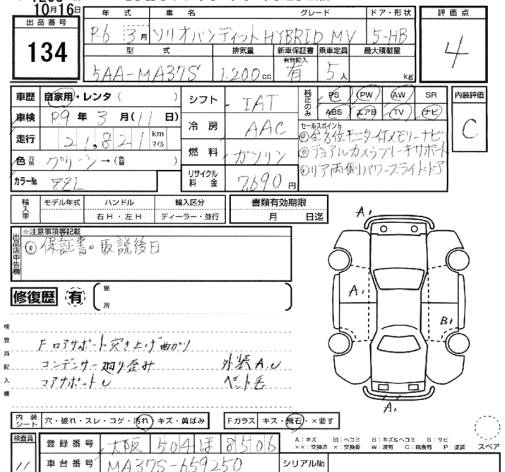 10月16日
出品番号
134
年式 車名 グレード ドア・形状 評価点
R6 3月 ソリオバンディット HYBRID MV 5-HB
4
型式 排気量 新車保証書 乗車定員 最大積載量
有無記入
5AA-MA37S 1,200cc 有 5人 kg
車歴 自家用・レンタ( )
車検 R9年3月(11日)
走行 21,821 km マイル
色 グリーン→(色 )
カラーNo ZZL
シフト IAT
冷房 AAC
燃料 ガソリン
リサイクル料金 7,690円
純正のみ
PS PW AW SR
ABS エアB TV ナビ
セールスポイント
全方位モニター付メモリーナビ
デュアルカメラブレーキサポート
リア両側パワースライドドア
内装評価
C
輸入車 モデル年式 ハンドル 輸入区分
右H・左H ディーラー・並行
書類有効期限
月 日迄
出品店申告欄
※注意事項等記載
保証書・取説後日
修復歴 有 箇所
検査員記入欄
Fロアサポート突き上げ曲がり
コンデンサー廻り歪み 外装A,U
コアサポートU
A1
A1
A1
B1
A1
内装シート 穴・破れ・スレ・コゲ・汚れ・キズ・黄ばみ
Fガラス キズ・飛石・×要す
スペア
検査員
登録番号 大阪 504 ほ 8506
車台番号 MA37S-659250
シリアルNo